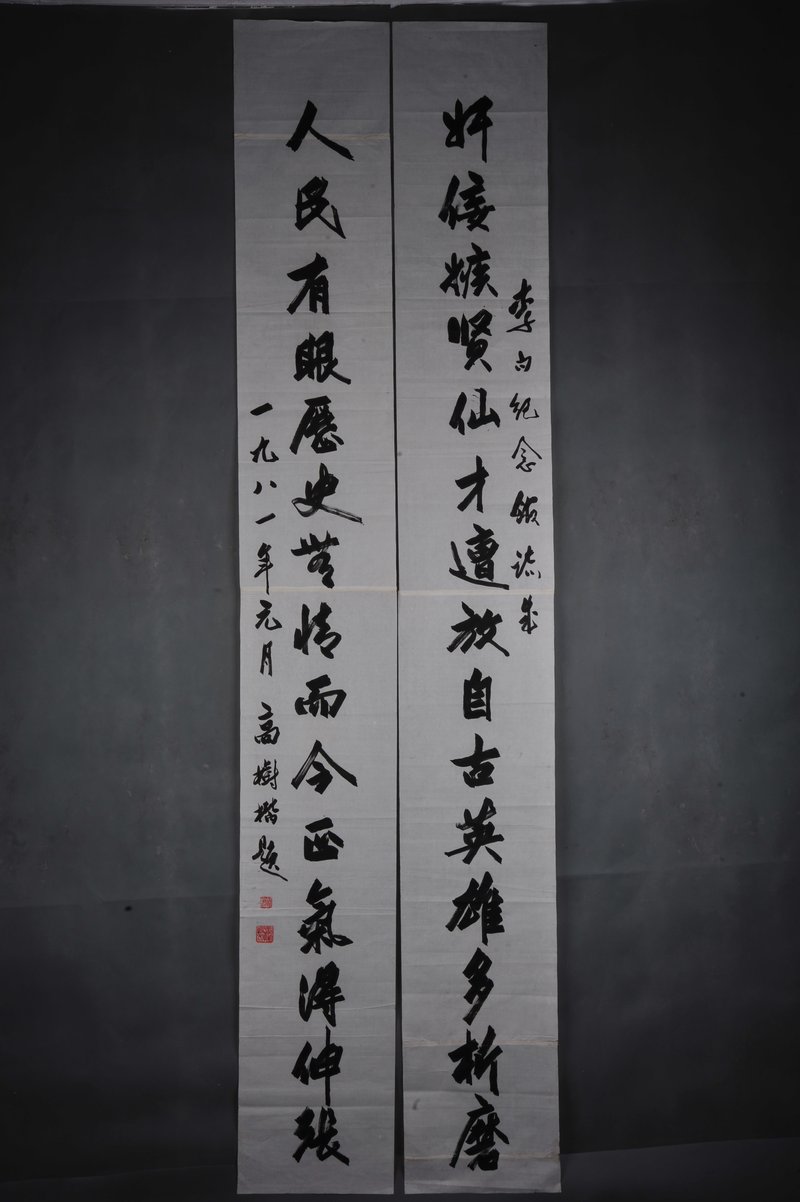 奸佞嫉贤仙才遭放自古英雄多折磨
李白纪念馆
人民有眼歷史無情而今正氣得伸張
一九八一年元月 高樹楷题